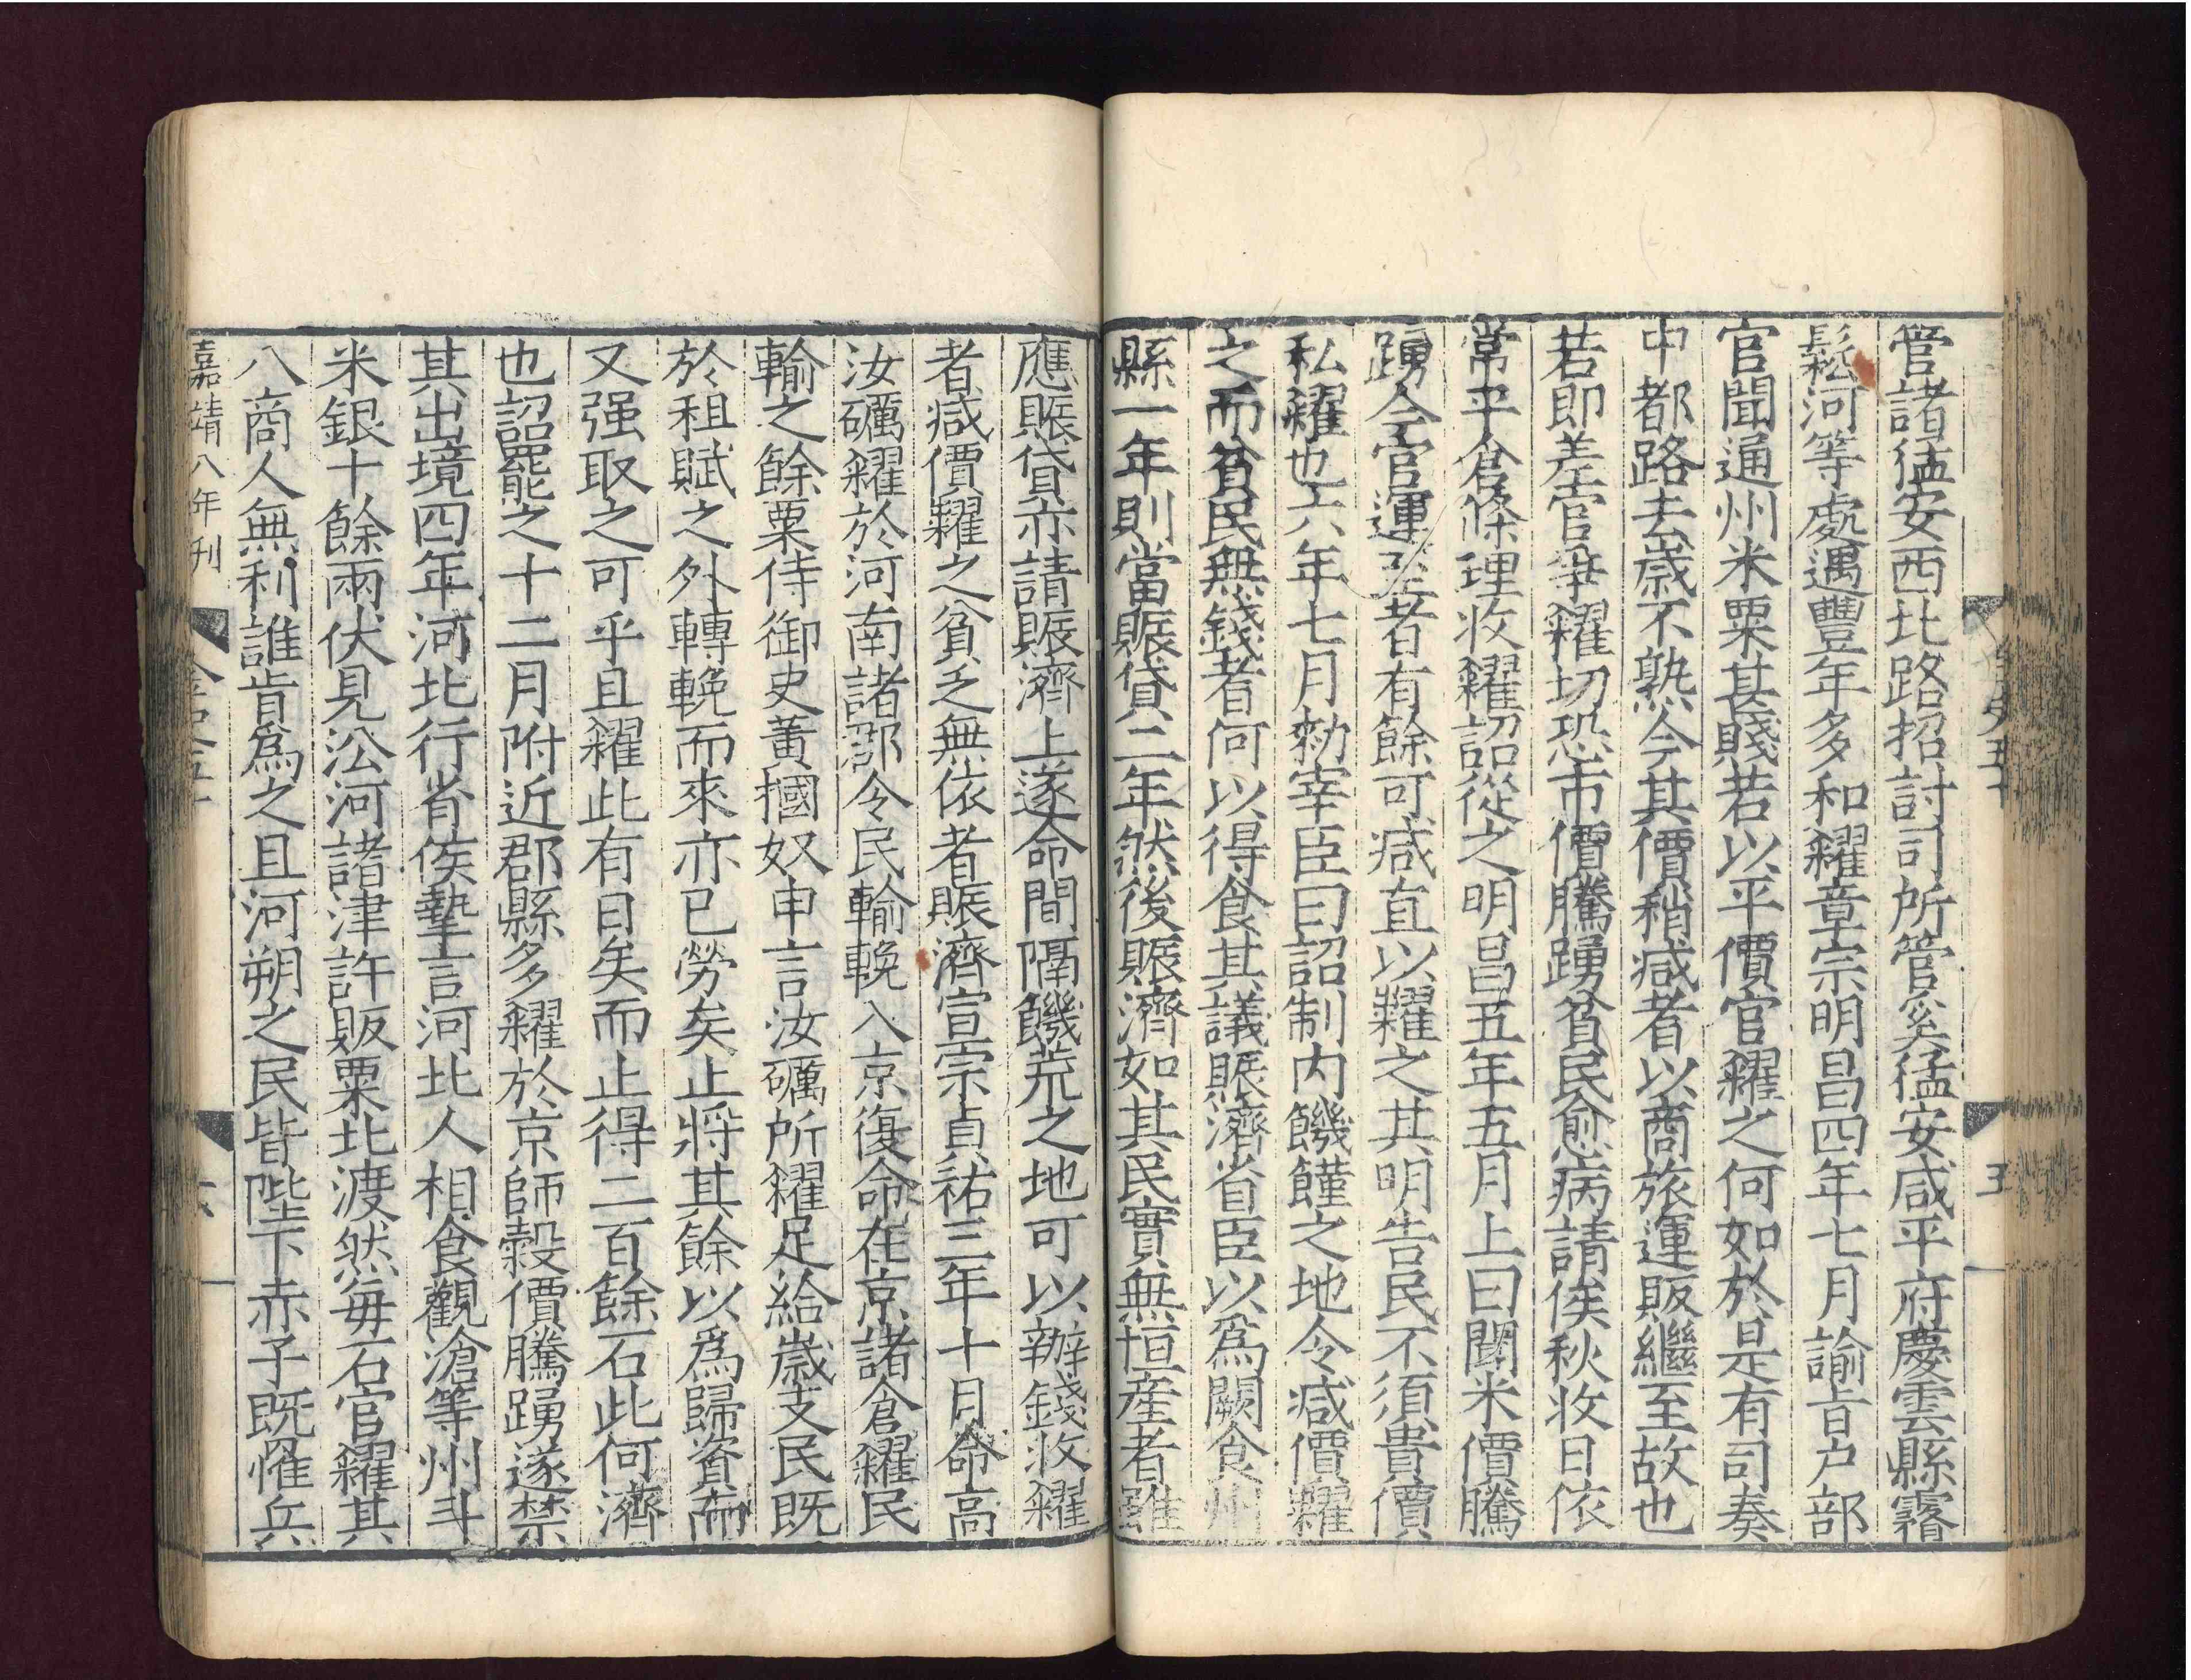 管諸猛安西北路招討司所管奚猛安咸平府慶雲縣霫
鬆河等處遇豐年多和糴章宗明昌四年七月諭旨户部
官聞通州米粟甚賤若以平價官糴之何如於是有司奏
中都路去歲不熟今其價稍减者以商旅運販繼至故也
若即差官爭糴切恐市價騰踴貧民愈病請俟秋收日依
常平倉條理收糴詔從之明昌五年五月上曰聞米價騰
踴今官運至者有餘可减直以糶之其明告民不須貴價
私糴也六年七月勑宰臣曰詔制内饑饉之地令减價糶
之而貧民無錢者何以得食其議賑濟省臣以爲闕食州
縣一年則當賑貸二年然後賑濟如其民實無恒産者雖
應賑貸亦請賑濟上遂命間隔饑荒之地可以辦錢收糴
者减價糶之貧乏無依者賑濟宣宗貞祐三年十月命高
汝礪糴於河南諸郡令民輸輓入京復命在京諸倉糴民
輸之餘粟侍御史黄摑奴申言汝礪所糴足給歲支民既
於租賦之外轉輓而來亦已勞矣止將其餘以爲歸資而
又强取之可乎且糴此有日矣而止得二百餘石此何濟
也詔罷之十二月附近郡縣多糴於京師穀價騰踴遂禁
其出境四年河北行省侯摯言河北人相食觀滄等州斗
米銀十餘兩伏見㳂河諸津許販粟北渡然每石官糴其
八商人無利誰肯爲之且河朔之民皆陛下赤子既罹兵
嘉靖八年刊